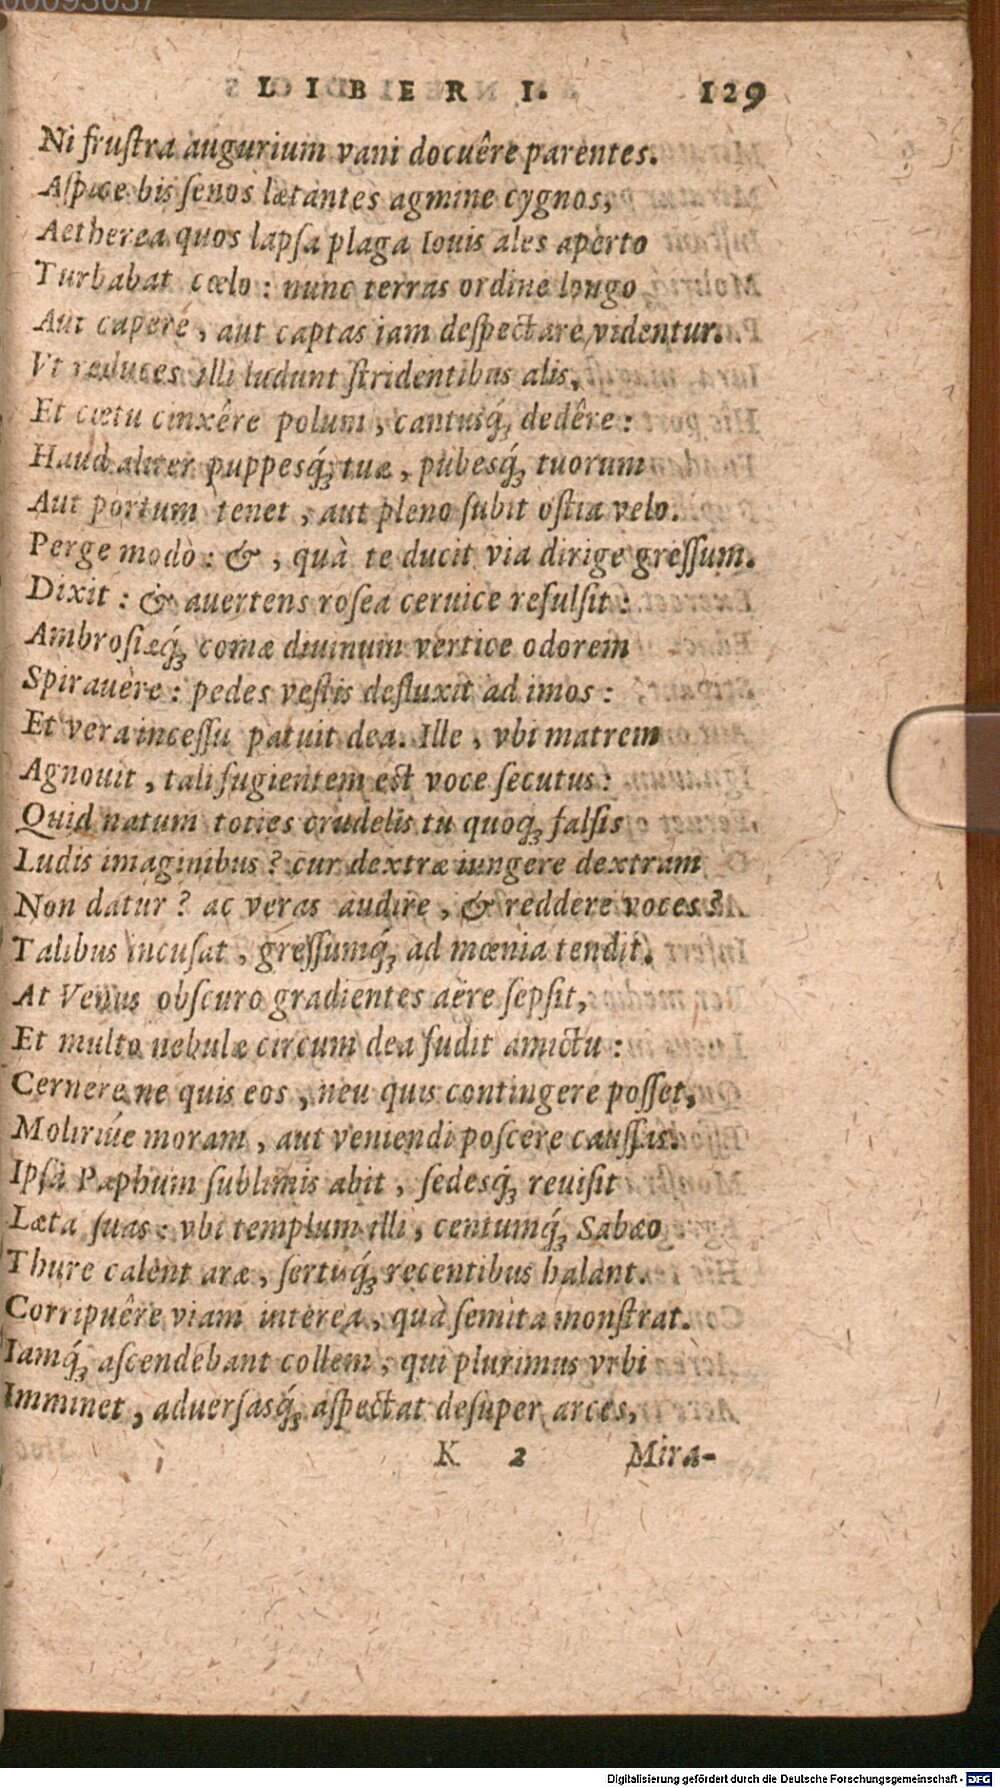 00093037
LIBER I. 129
Ni fruſtra augurium vani docuêre parentes.
Aſpice bis ſenos lætantes agmine cygnos,
Aetherea quos lapſa plaga Iouis ales aperto
Turbabat cœlo : nunc terras ordine longo
Aut capere, aut captas iam deſpectare videntur.
Vt reduces illi ludunt ſtridentibus alis,
Et cœtu cinxêre polum, cantusq́; dedêre:
Haud aliter puppesq́; tuæ, pubesq́; tuorum
Aut portum tenet, aut pleno ſubit oſtia velo.
Perge modò: &, quà te ducit via dirige greſſum.
Dixit : & auertens roſea ceruice refulſit :
Ambroſiæq́; comæ diuinum vertice odorem
Spirauêre: pedes veſtis defluxit ad imos :
Et vera inceſſu patuit dea. Ille, vbi matrem
Agnouit, tali fugientem eſt voce ſecutus:
Quid natum toties crudelis tu quoq; falſis
Ludis imaginibus? cur dextræ iungere dextram
Non datur? ac veras audire, & reddere voces?
Talibus incuſat, greſſumq́; ad mœnia tendit.
At Venus obſcuro gradientes aëre ſepſit,
Et multo nebulæ circum dea fudit amictu :
Cernere ne quis eos, neu quis contingere poſſet,
Moliriúe moram, aut veniendi poſcere cauſſas.
Ipſa Paphum ſublimis abit, ſedesq́; reuiſit
Læta ſuas: vbi templum illi, centumq́; Sabæo
Thure calent aræ, ſertisq́; recentibus halant.
Corripuêre viam interea, quà ſemita monſtrat.
Iamq́; aſcendebant collem, qui plurimus vrbi
Imminet, aduerſasq́; aſpectat deſuper arces,
K 2 Mira-
Digitalisierung gefördert durch die Deutsche Forschungsgemeinschaft - DFG